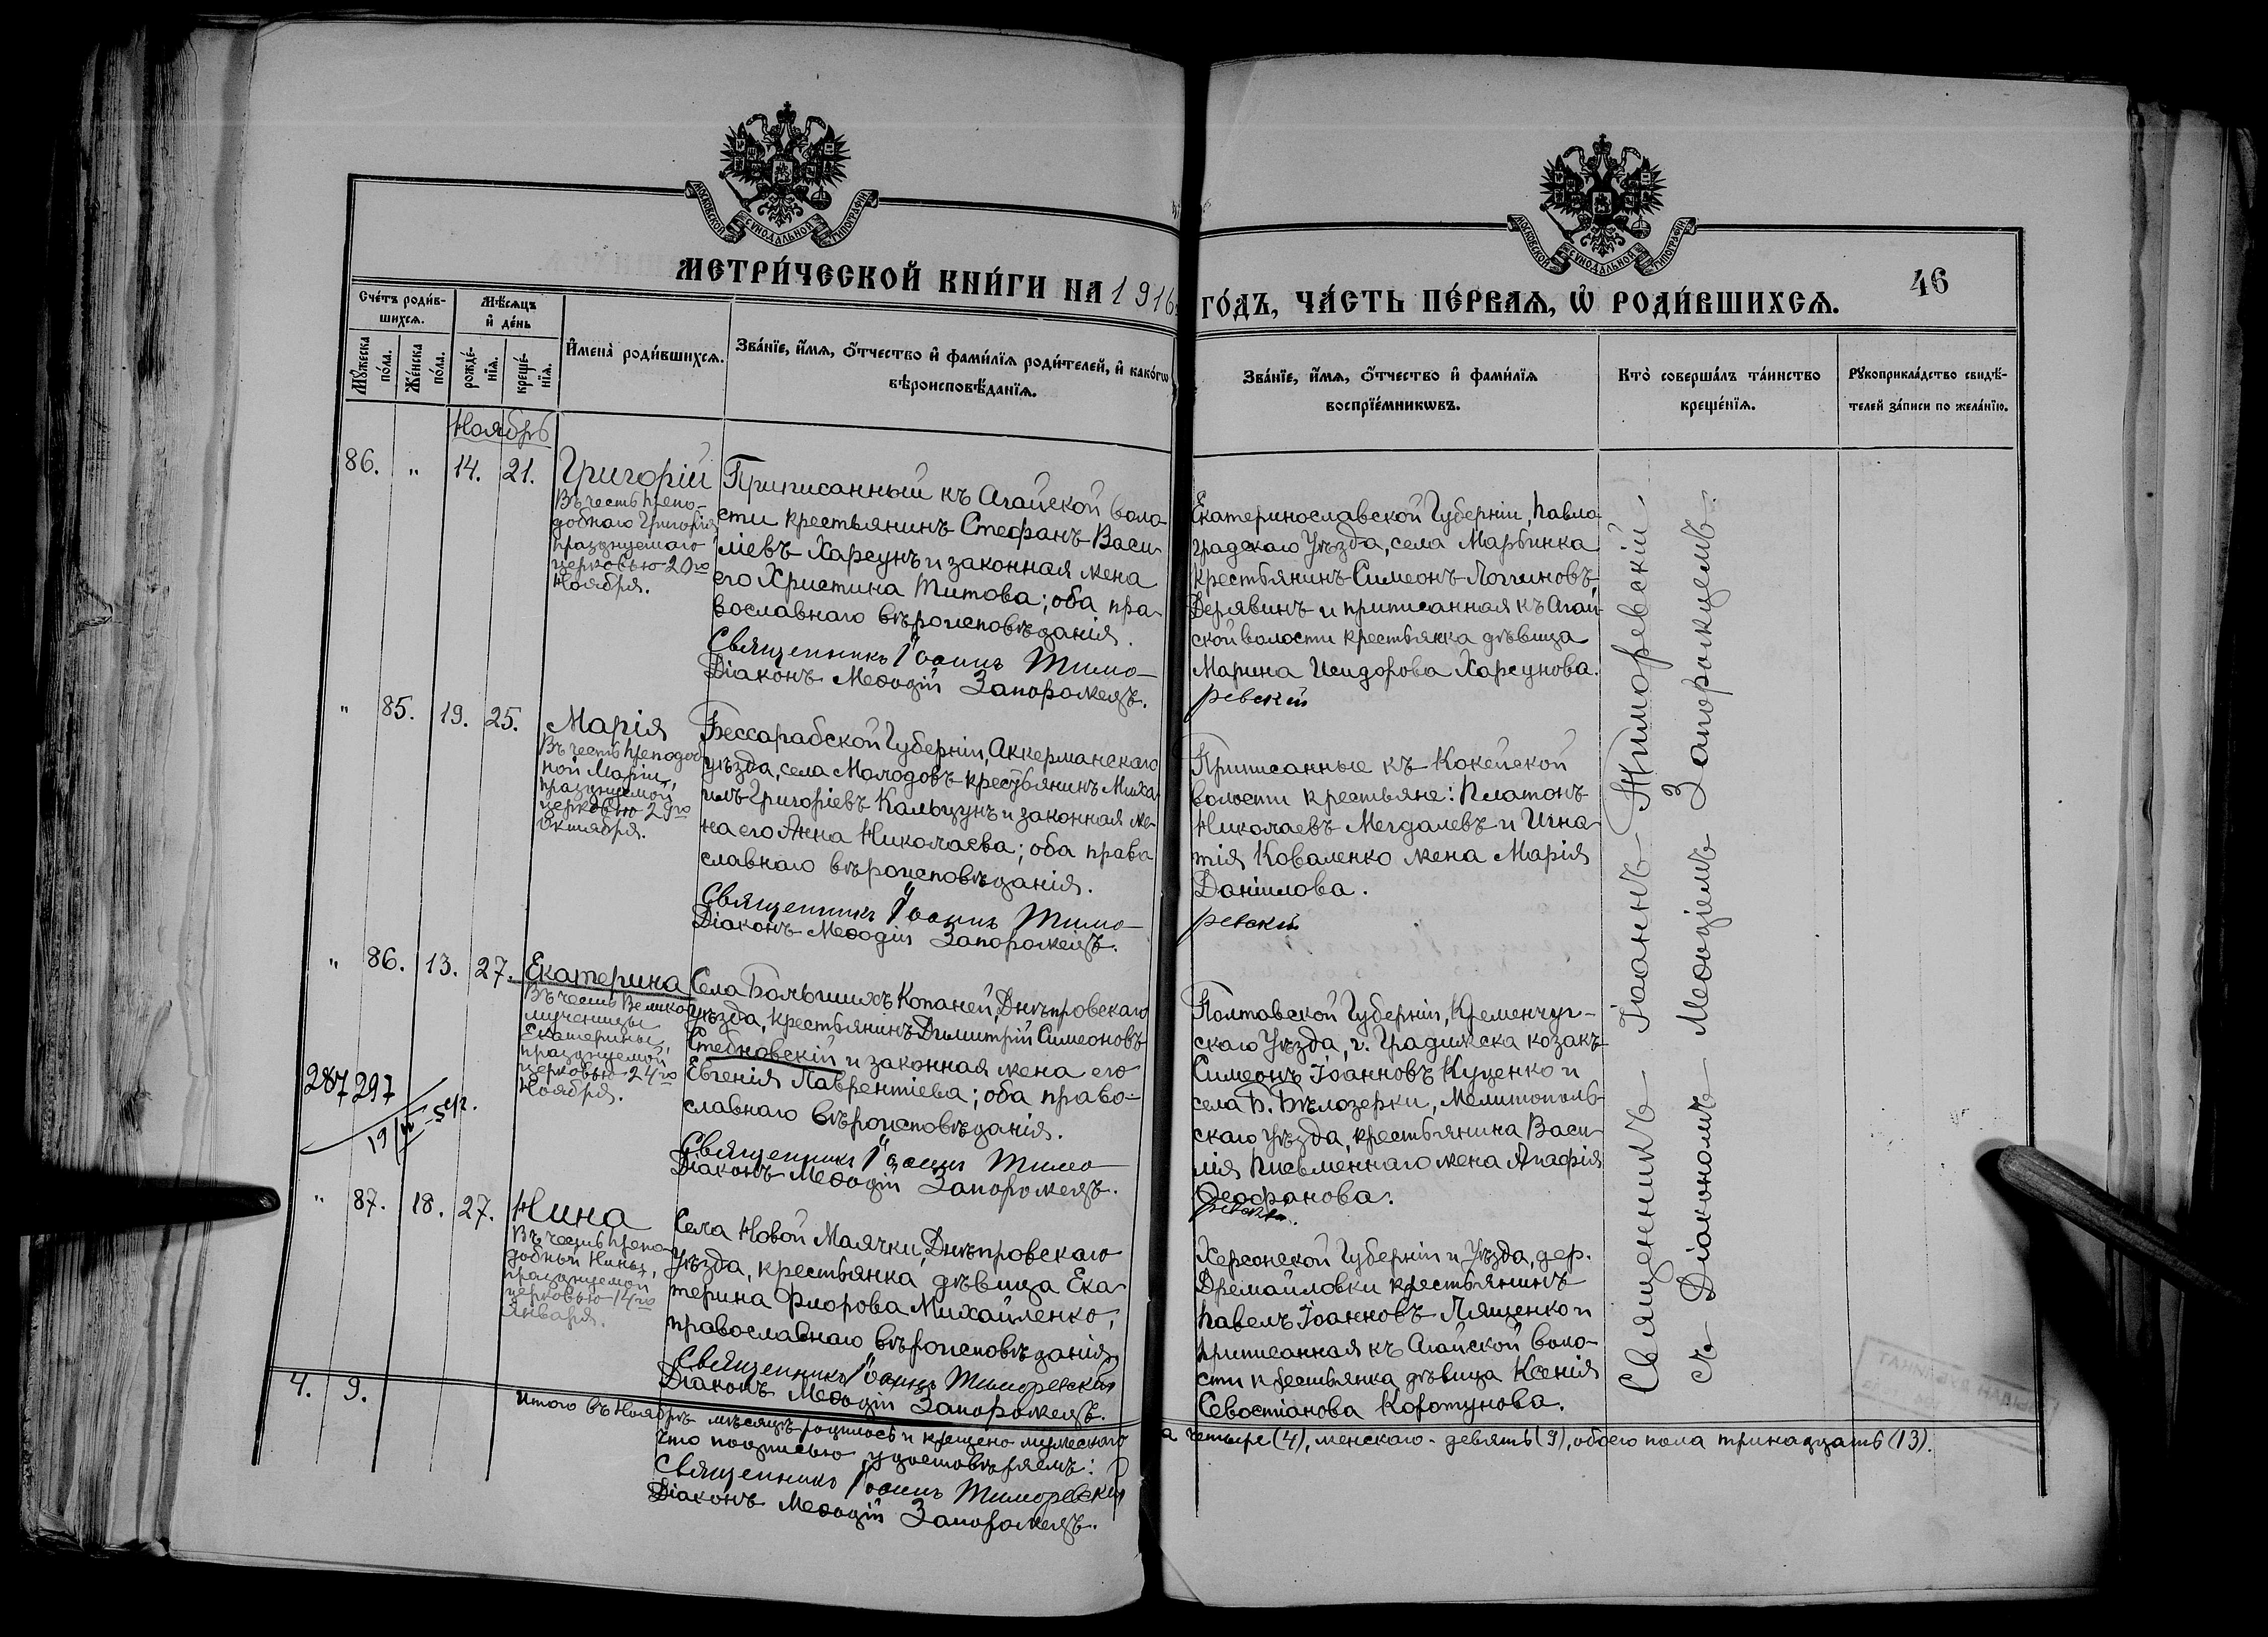 МОСКОВСКОЙ СѴНОДАЛЬНОЙ ТИПОГРАФІИ
МОСКОВСКОЙ СѴНОДАЛЬНОЙ ТИПОГРАФІИ
МЕТРИ́ЧЕСКОЙ КНИ́ГИ НА 1916
ГО́ДЪ, ЧА́СТЬ ПЕ́РВАЯ, Ѡ҆ РОДИ́ВШИХСЯ.
46
Сче́тъ роди́в-
шихся.
Мѣ́сяцъ
и҆ де́нь
Мꙋ́жеска по́ла.
Же́нска по́ла.
рожде́-
нїя.
креще́-
нїя.
И҆мена̀ роди́вшихся.
Зва́нїе, и҆́мя, ѻ҆́тчество и҆ фами́лїя роди́телей, и҆ како́гѡ
вѣроисповѣ́данїя.
Зва́нїе, и҆́мя, ѻ҆́тчество и҆ фами́лїя
воспрїе́мникѡвъ.
Кто̀ соверша́лъ та́инство
креще́нїя.
Рꙋкоприкла́дство свидѣ́-
телей за́писи по жела́нїю.
Ноябрь
86. " 14. 21.
Григорій
Въ честь препо-
добнаго Григорія
празднуемаго
церковью 20го
Ноября.
Приписанный къ Агайской воло-
сти крестьянинъ Стефанъ Васи-
ліевъ Харсунъ и законная жена
его Христина Титова; оба пра-
вославнаго вѣроисповѣданія.
Священникъ Іоаннъ Тимо-
Діаконъ Меѳодій Запорожецъ.
Екатеринославской Губерніи, Павло-
градскаго Уѣзда, села Марьинка
крестьянинъ Симеонъ Логгиновъ
Дерявинъ и приписанная къ Агай-
ской волости крестьянка дѣвица
Марина Исидорова Харсунова.
ревскій
" 85. 19. 25.
Марія
Въ честь преподоб-
ной Маріи,
празднуемой
церковью 29го
Октября.
Бессарабской Губерніи, Аккерманскаго
уѣзда, села Молодовъ крестьянинъ Миха-
илъ Григоріевъ Кальцунъ и законная же-
на его Анна Николаева; оба право-
славнаго вѣроисповѣданія.
Священникъ Іоаннъ Тимо-
Діаконъ Меѳодій Запорожецъ.
Приписанные къ Кокейской
волости крестьяне: Платонъ
Николаевъ Мегдалевъ и Игна-
тія Коваленко жена Марія
Даніилова.
ревскій
" 86. 13. 27.
Екатерина
Въ честь Велико-
мученицы
Екатерины,
празднуемой
церковью 24го
Ноября.
287 297
Села Большихъ Копаней, Днѣпровскаго
уѣзда, крестьянинъ Димитрій Симеоновъ
Стебновскій и законная жена его
Евгенія Лаврентіева; оба право-
славнаго вѣроисповѣданія.
Священникъ Іоаннъ Тимо-
Діаконъ Меѳодій Запорожецъ.
Полтавской Губерніи, Кременчуг-
скаго Уѣзда, г. Градижска козакъ
Симеонъ Іоанновъ Куценко и
села Б. Бѣлозерки, Мелитополь-
скаго Уѣзда, крестьянина Васи-
лія Письменнаго жена Агафія
Ѳеофанова.
ревскій.
" 87. 18. 27.
Нина
Въ честь препо-
добный Нины,
празднуемой
церковью 14го
Января.
Села Новой Маячки, Днѣпровскаго
Уѣзда, крестьянка дѣвица Ека-
терина Флорова Михайленко,
православнаго вѣроисповѣданія.
Священникъ Іоаннъ Тиморевскій
Діаконъ Меѳодій Запорожецъ.
Херсонской Губерніи и Уѣзда, дер.
Дремайловки крестьянинъ
Павелъ Іоанновъ Лященко и
приписанная къ Агайской воло-
сти крестьянка дѣвица Ксенія
Севостіанова Коротунова.
Священникъ Іоаннъ Тиморевскій
съ Діакономъ Меѳодіемъ Запорожцемъ
4. 9.
Итого въ Ноябрѣ мѣсяцѣ родилось и крещено мужескаго
а четыре (4), женскаго - девять (9), обоего пола тринадцать (13).
Что подписью удостовѣряемъ:
Священникъ Іоаннъ Тиморевскій
Діаконъ Меѳодій Запорожецъ.